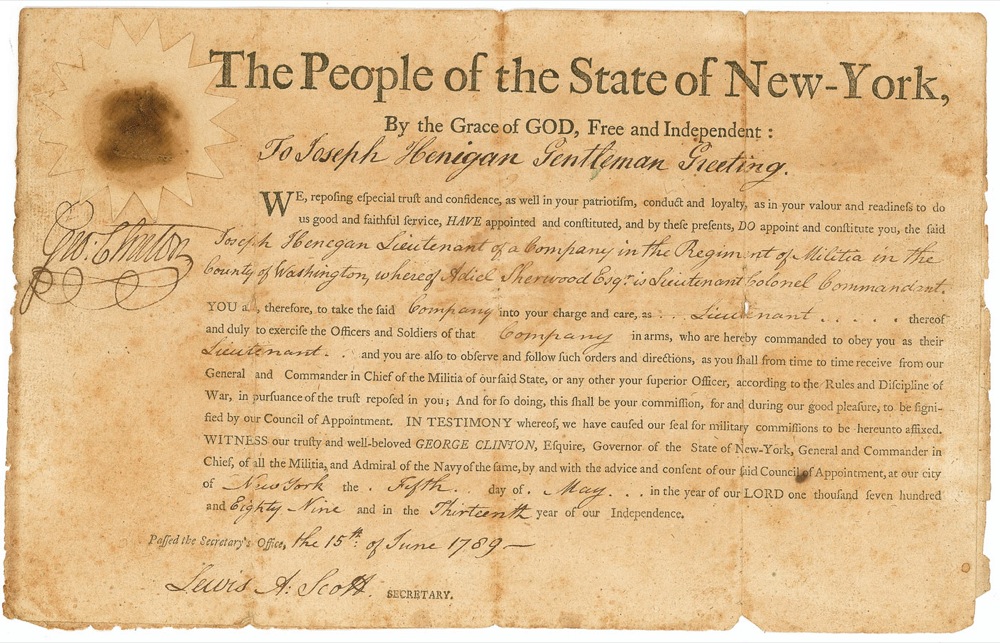 The People of the State of New-York,
By the Grace of GOD, Free and Independent :
To Joseph Henigan Gentleman Greeting.
WE, reposing eſpecial truſt and confidence, as well in your patriotiſm, conduct and loyalty, as in your valour and readineſs to do
us good and faithful ſervice, HAVE appointed and conſtituted, and by theſe preſents, DO appoint and conſtitute you, the ſaid
Geo: Clinton
Joseph Henegan Lieutenant of a Company in the Regiment of Militia in the
County of Washington, whereof Adiel Sherwood Esqr. is Lieutenant Colonel Commandant.
YOU therefore, to take the ſaid Company into your charge and care, as . . Lieutenant . . . . . thereof
and duly to exerciſe the Officers and Soldiers of that Company in arms, who are hereby commanded to obey you as their
Lieutenant . . and you are alſo to obſerve and follow ſuch orders and directions, as you ſhall from time to time receive from our
General and Commander in Chief of the Militia of our ſaid State, or any other your ſuperior Officer, according to the Rules and Diſcipline of
War, in purſuance of the truſt repoſed in you; And for ſo doing, this ſhall be your commiſſion, for and during our good pleaſure, to be ſigni-
fied by our Council of Appointment. IN TESTIMONY whereof, we have cauſed our ſeal for military commiſſions to be hereunto affixed.
WITNESS our truſty and well-beloved GEORGE CLINTON, Eſquire, Governor of the State of New-York, General and Commander in
Chief, of all the Militia, and Admiral of the Navy of the ſame, by and with the advice and conſent of our ſaid Council of Appointment, at our city
of New York the . Fifth . . day of . May . . . in the year of our LORD one thouſand ſeven hundred
and Eighty Nine and in the Thirteenth year of our Independence.
Paſſed the Secretary's Office, the 15th. of June 1789 —
Lewis A: Scott. SECRETARY.